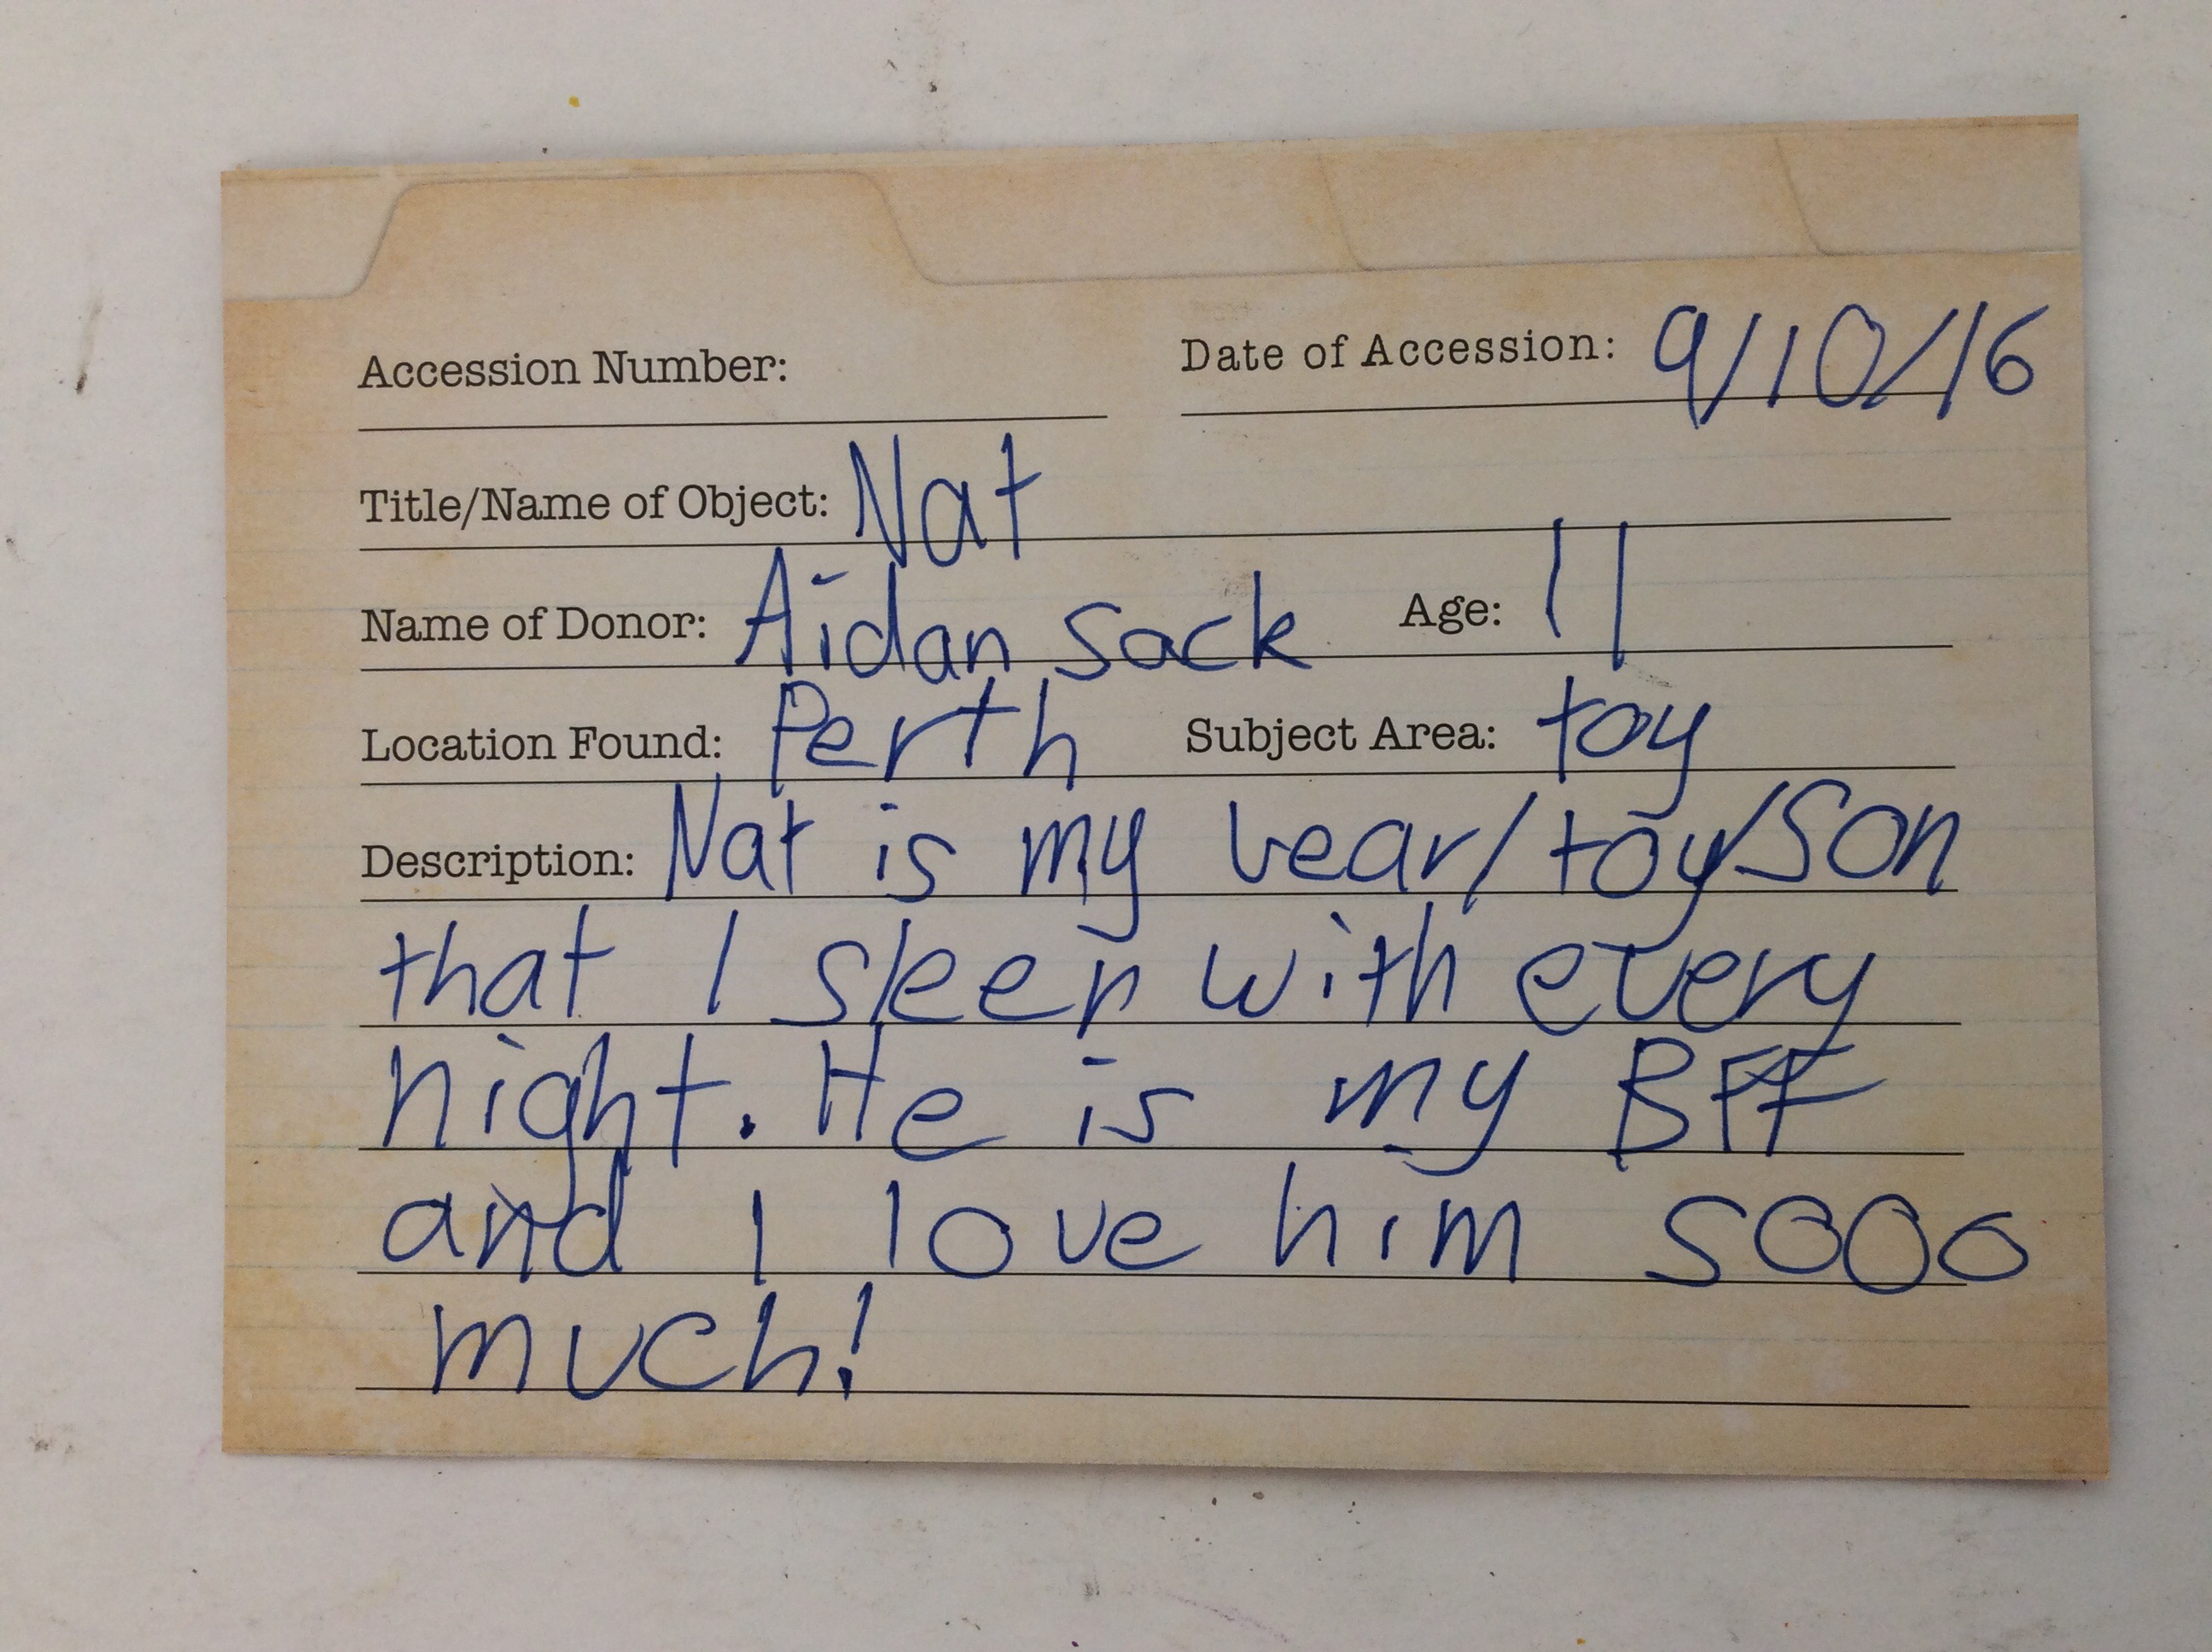 Accession Number:
Date of Accession: 9/10/16
Title/Name of Object: Nat
Name of Donor: Aidan Sack Age: 11
Location Found: Perth Subject Area: toy
Description: Nat is my bear/toy/Son
that I sleep with every
night. He is my BFF
and I love him sooo
much!